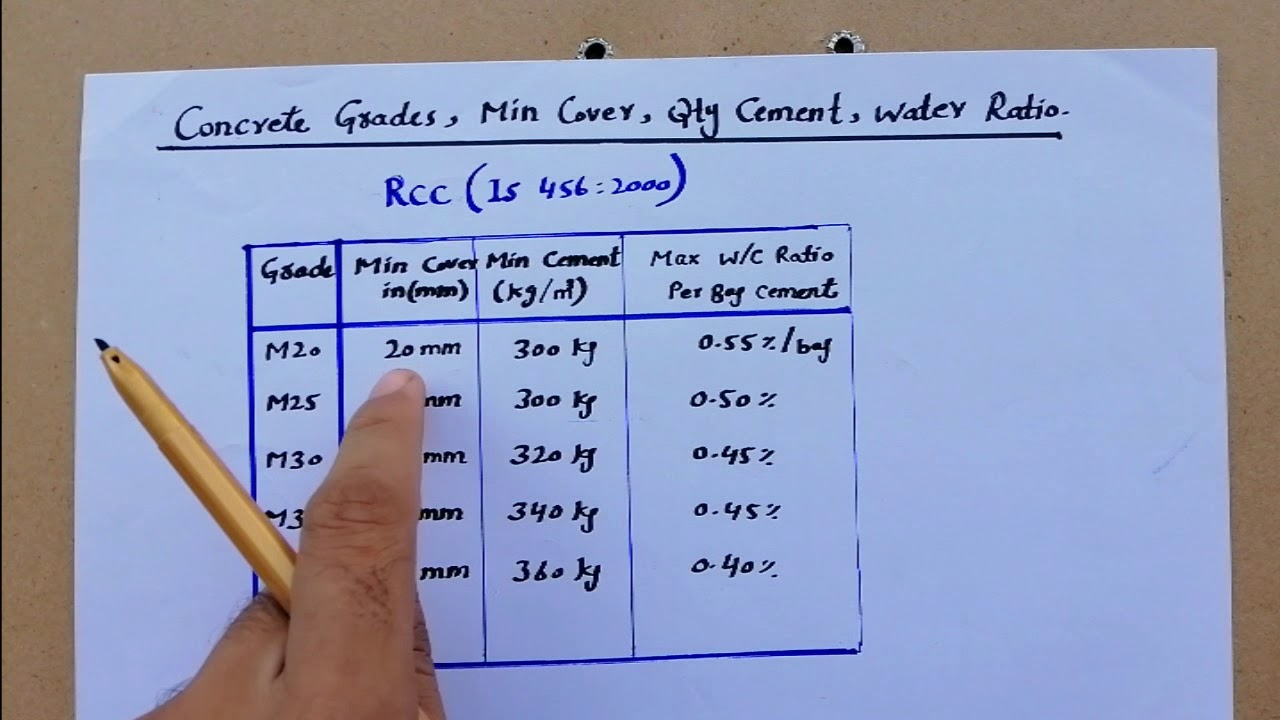 Concrete Grades, Min Cover, Qty Cement, Water Ratio.
RCC (Is 456:2000)
Grade Min Cover in(mm) Min Cement (kg/m³) Max W/C Ratio Per Bag Cement
M20 20 mm 300 kg 0.55%/bag
M25 mm 300 kg 0.50%
M30 mm 320 kg 0.45%
M3 mm 340 kg 0.45%
mm 360 kg 0.40%